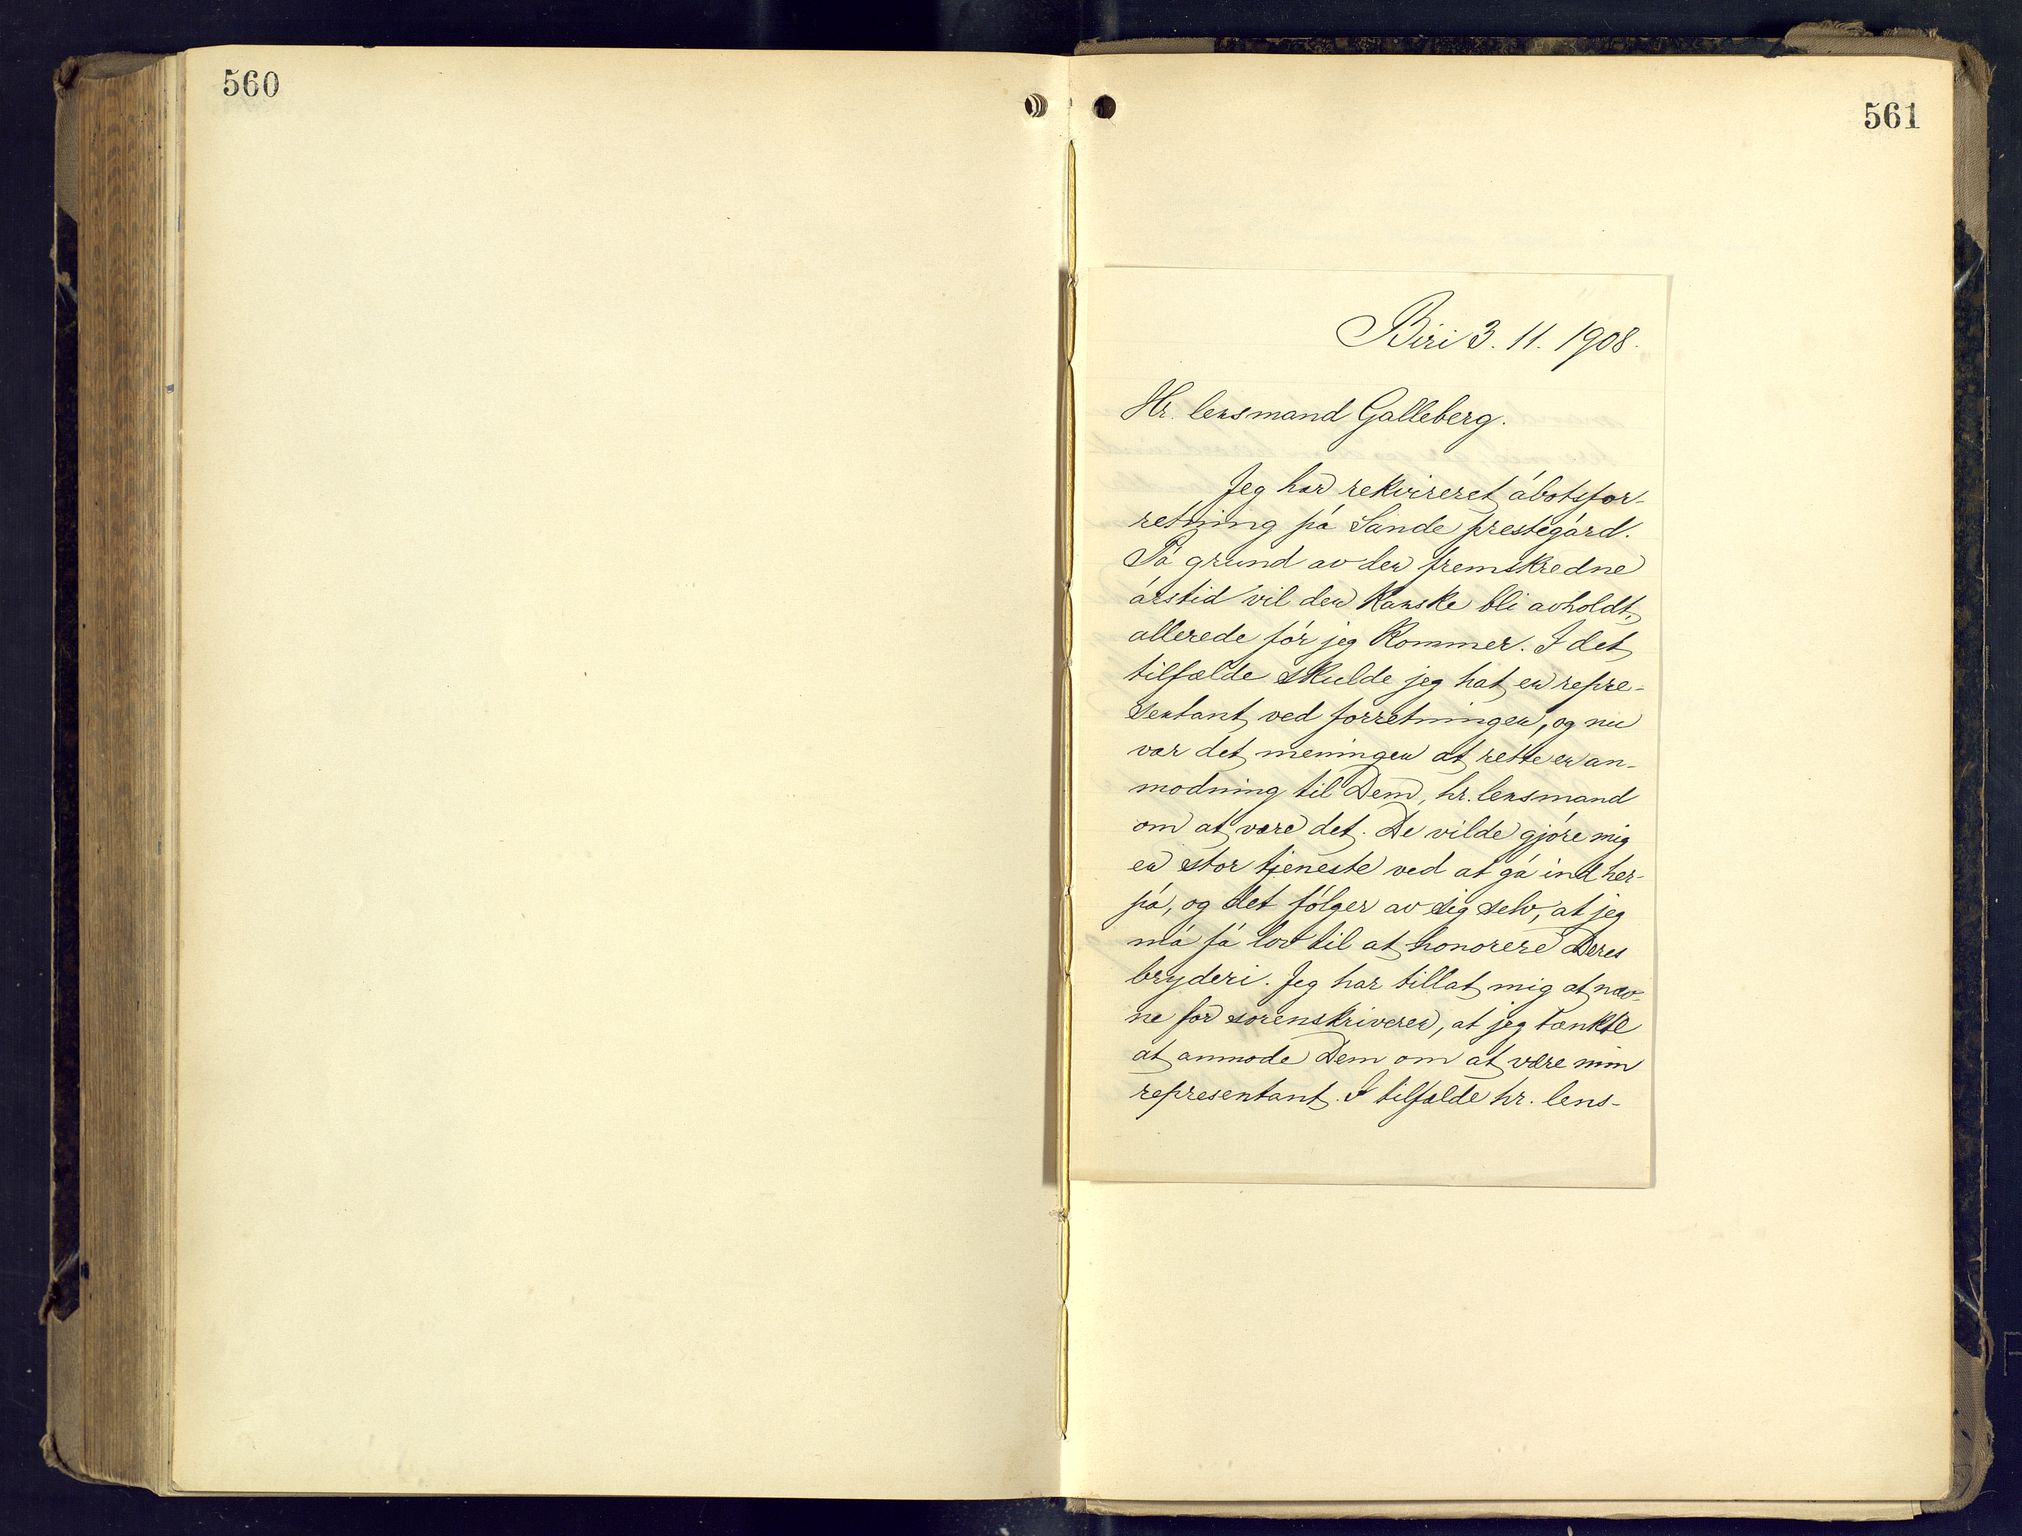 560
561
Biri 3. 11. 1908.
Hr. lensmand Galleberg.
Jeg har rekvireret åbotsfor-
retning på Sande prestegård.
På grund av den fremskredne
årstid vil den kanske bli avholdt
allerede før jeg kommer. I det
tilfælde skulde jeg hat en repre-
sentant ved forretningen, og nu
var det meningen at rette en an-
modning til Dem, hr. lensmand
om at være det. De vilde gjøre mig
en stor tjeneste ved at gå ind her-
på, og det følger av sig selv, at jeg
må få lov til at honorere Deres
bryderi. Jeg har tillat mig at næv-
ne for sorenskriveren, at jeg tænkte
at anmode Dem om at være min
representant. I tilfælde hr. lens-